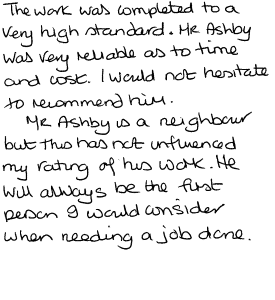 The work was completed to a
very high standard. Mr Ashby
was very reliable as to time
and cost. I would not hesitate
to recommend him.
Mr Ashby is a neighbour
but this has not influenced
my rating of his work. He
will always be the first
person I would consider
when needing a job done.